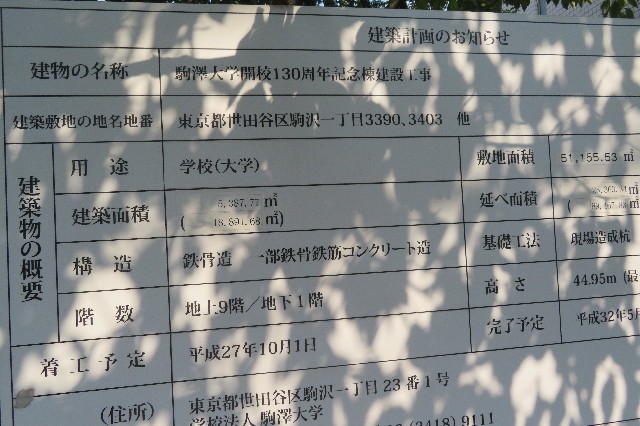 建築計画のお知らせ
建物の名称 駒澤大学開校130周年記念棟建設工事
建築敷地の地名地番 東京都世田谷区駒沢一丁目3390、3403 他
建築物の概要
用途 学校(大学) 敷地面積 51,155.53 ㎡
建築面積 5,387.77 ㎡ 延べ面積
( 18,891.68 ㎡)
構造 鉄骨造 一部鉄骨鉄筋コンクリート造 基礎工法 現場造成杭
階数 地上9階/地下1階 高さ 44.95m (最
着工予定 平成27年10月1日 完了予定 平成32年5月
(住所) 東京都世田谷区駒沢一丁目 23 番 1 号
学校法人 駒澤大学
(3418) 9111